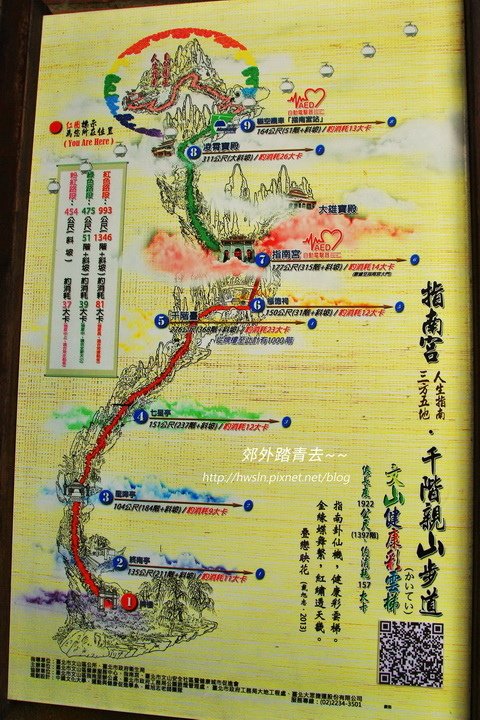 紅樹標示
為您所在位置
( You Are Here )
紅色路段：993公尺 1346階+斜坡）約消耗81大卡
綠色路段：475公尺 51階+斜坡）約消耗39大卡
粉紅路段：454公尺（斜坡）約消耗37大卡
AED
自動電擊器
9
貓空纜車「指南宮站」
164公尺(51階+斜坡) / 約消耗13大卡
8 凌霄寶殿
311公尺(大斜坡) / 約消耗26大卡
大雄寶殿
AED
自動電擊器
7 指南宮
177公尺(315階+斜坡) / 約消耗14大卡
6 福德祠
150公尺(31階+斜坡) / 約消耗12大卡
5 千階臺
276公尺(368階+斜坡) / 約消耗23大卡
從牌樓至此計有1000階
4 七星亭
151公尺(237階+斜坡) / 約消耗12大卡
3
104公尺(184階+斜坡) / 約消耗9大卡
2 指南亭
135公尺(211階+斜坡) / 約消耗11大卡
1 牌樓
指南宮 人生指南 三方五地・千階親山步道
文山健康彩雲梯 (かいてい)
總長度1922公尺(1397階)、總消耗157大卡
指南卦仙機，健康彩雲梯。
金緣蝶舞繁，紅繡透天幾。
疊戀映花
2013)
郊外踏青去~~
http://hwsln.pixnet.net/blog
服務專線：(02)2234-3501